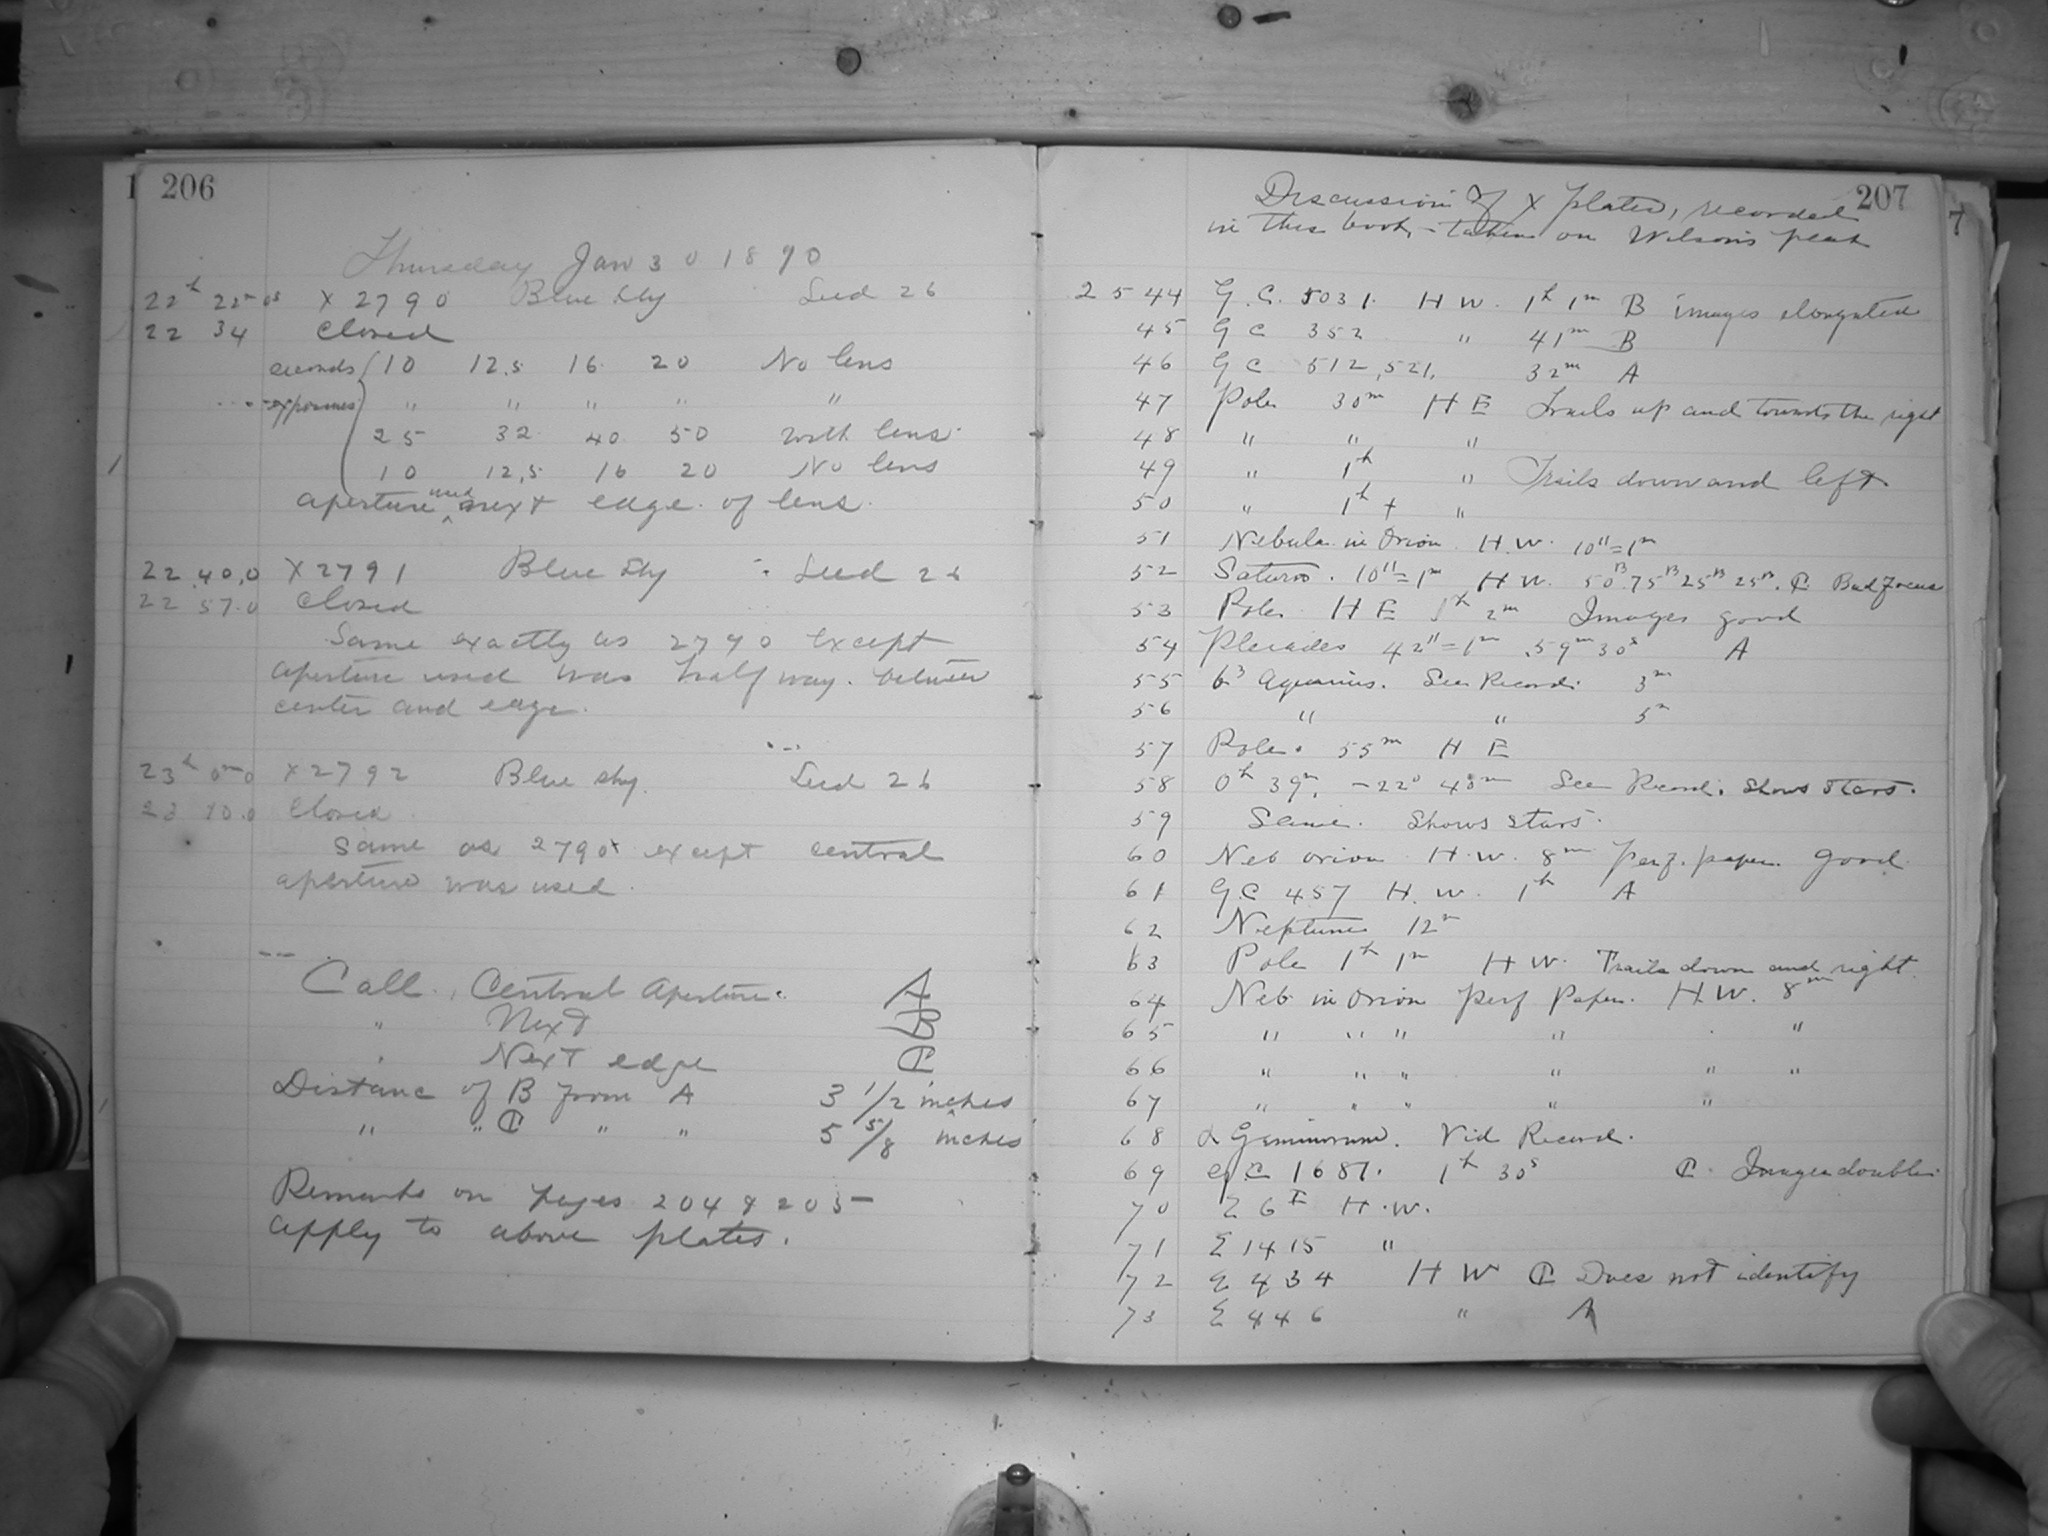 1 206
Thursday Jan 30 1890
22h 22m 0s X 2790 Blue Sky Seed 26
22 34 Closed
seconds 10 12.5 16 20 No lens
exposures " " " " "
25 32 40 50 with lens
10 12.5 16 20 No lens
aperture used next edge of lens.
22 40.0 X 2791 Blue Sky Seed 26
22 57.0 Closed
Same exactly as 2790 except
aperture used was half way between
center and edge.
23h 0m 0 X 2792 Blue sky. Seed 26
23 10.0 Closed
Same as 2790 except central
aperture was used.
Call Central Aperture A
" Next B
" Next edge C
Distance of B from A 3 1/2 inches
" " C " " 5 5/8 inches
Remarks on pages 204 & 205
apply to above plates.
207
7
Discussion of X plates, recorded
in this book, - taken on Wilson's peak
2544 G.C. 5031. H W. 1h 1m B images elongated
45 G C 352 " 41m B
46 G C 512, 521. 32m A
47 Pole 30m H E Trails up and towards the right
48 " " "
49 " 1h " Trails down and left.
50 " 1h + "
51 Nebula in Orion H.W. 10"=1m
52 Saturn. 10"=1m H W. 50B 75B 25B 25B. C Bad focus
53 Pole. H E 1h 2m Images good
54 Pleiades 42"=1m 59m 30s A
55 Aquarius. See Record. 3m
56 " " 5m
57 Pole. 55m H E
58 0h 39m, -22° 40m See Record. Shows Stars.
59 Same. Shows stars.
60 Neb orion H.W. 8m perf. paper. good
61 G.C 457 H.W. 1h A
62 Neptune 12m
63 Pole 1h 1m H W. Trails down and right
64 Neb in Orion perf Paper. H.W. 8m
65 " " " " "
66 " " " " " "
67 " " " " "
68 α Geminorum. Vid Record.
69 G C 1687. 1h 30s C. Images double.
70 Σ 6 I H.W.
71 Σ 1415 "
72 Σ 434 H W C Does not identify
73 Σ 446 " A